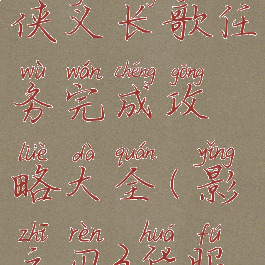 侠义长歌任
wù wán chéng gōng
务完成攻
lüè dà quán yǐng
略大全(影
zhī rèn huá fú
之刃 华服